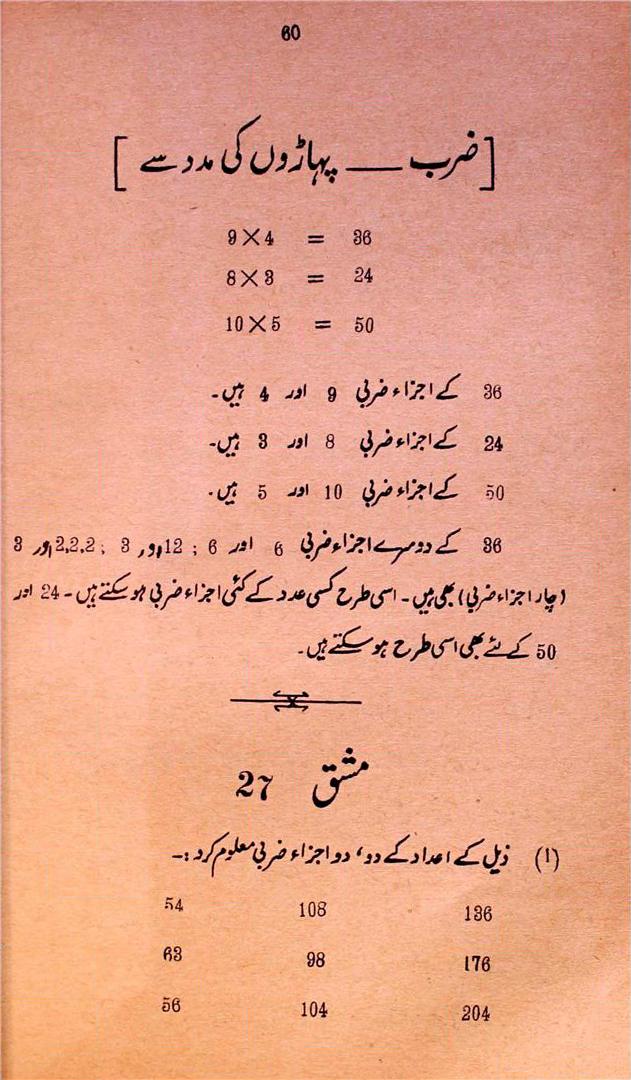 60
[ضرب — پہاڑوں کی مدد سے]
9×4 = 36
8×3 = 24
10×5 = 50
36 کے اجزاء ضربی 9 اور 4 ہیں۔
24 کے اجزاء ضربی 8 اور 3 ہیں۔
50 کے اجزاء ضربی 10 اور 5 ہیں۔
36 کے دوسرے اجزاء ضربی 6 اور 6 ; 12 اور 3 ; 2,2,2 اور 3
(چار اجزاء ضربی) بھی ہیں۔ اسی طرح کسی عدد کے کئی اجزاء ضربی ہو سکتے ہیں۔ 24 اور
50 کے لئے بھی اسی طرح ہو سکتے ہیں۔
مشق 27
(1) ذیل کے اعداد کے دو، دو اجزاء ضربی معلوم کرو :۔
136 108 54
176 98 63
204 104 56